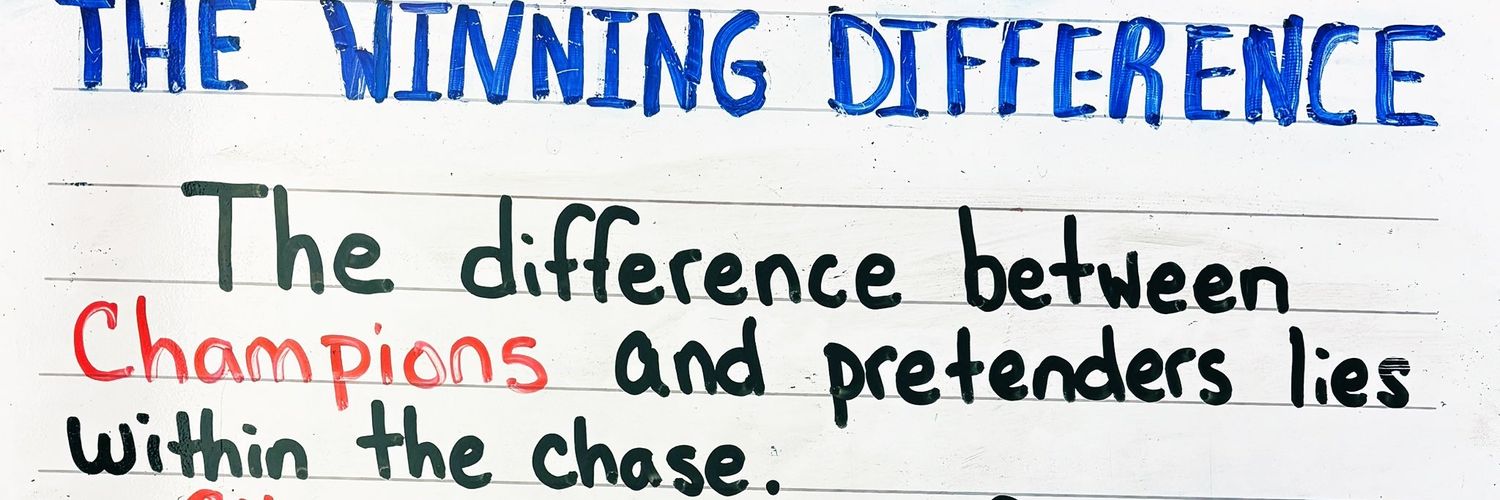 THE WINNING DIFFERENCE
The difference between
Champions and pretenders lies
within the chase.